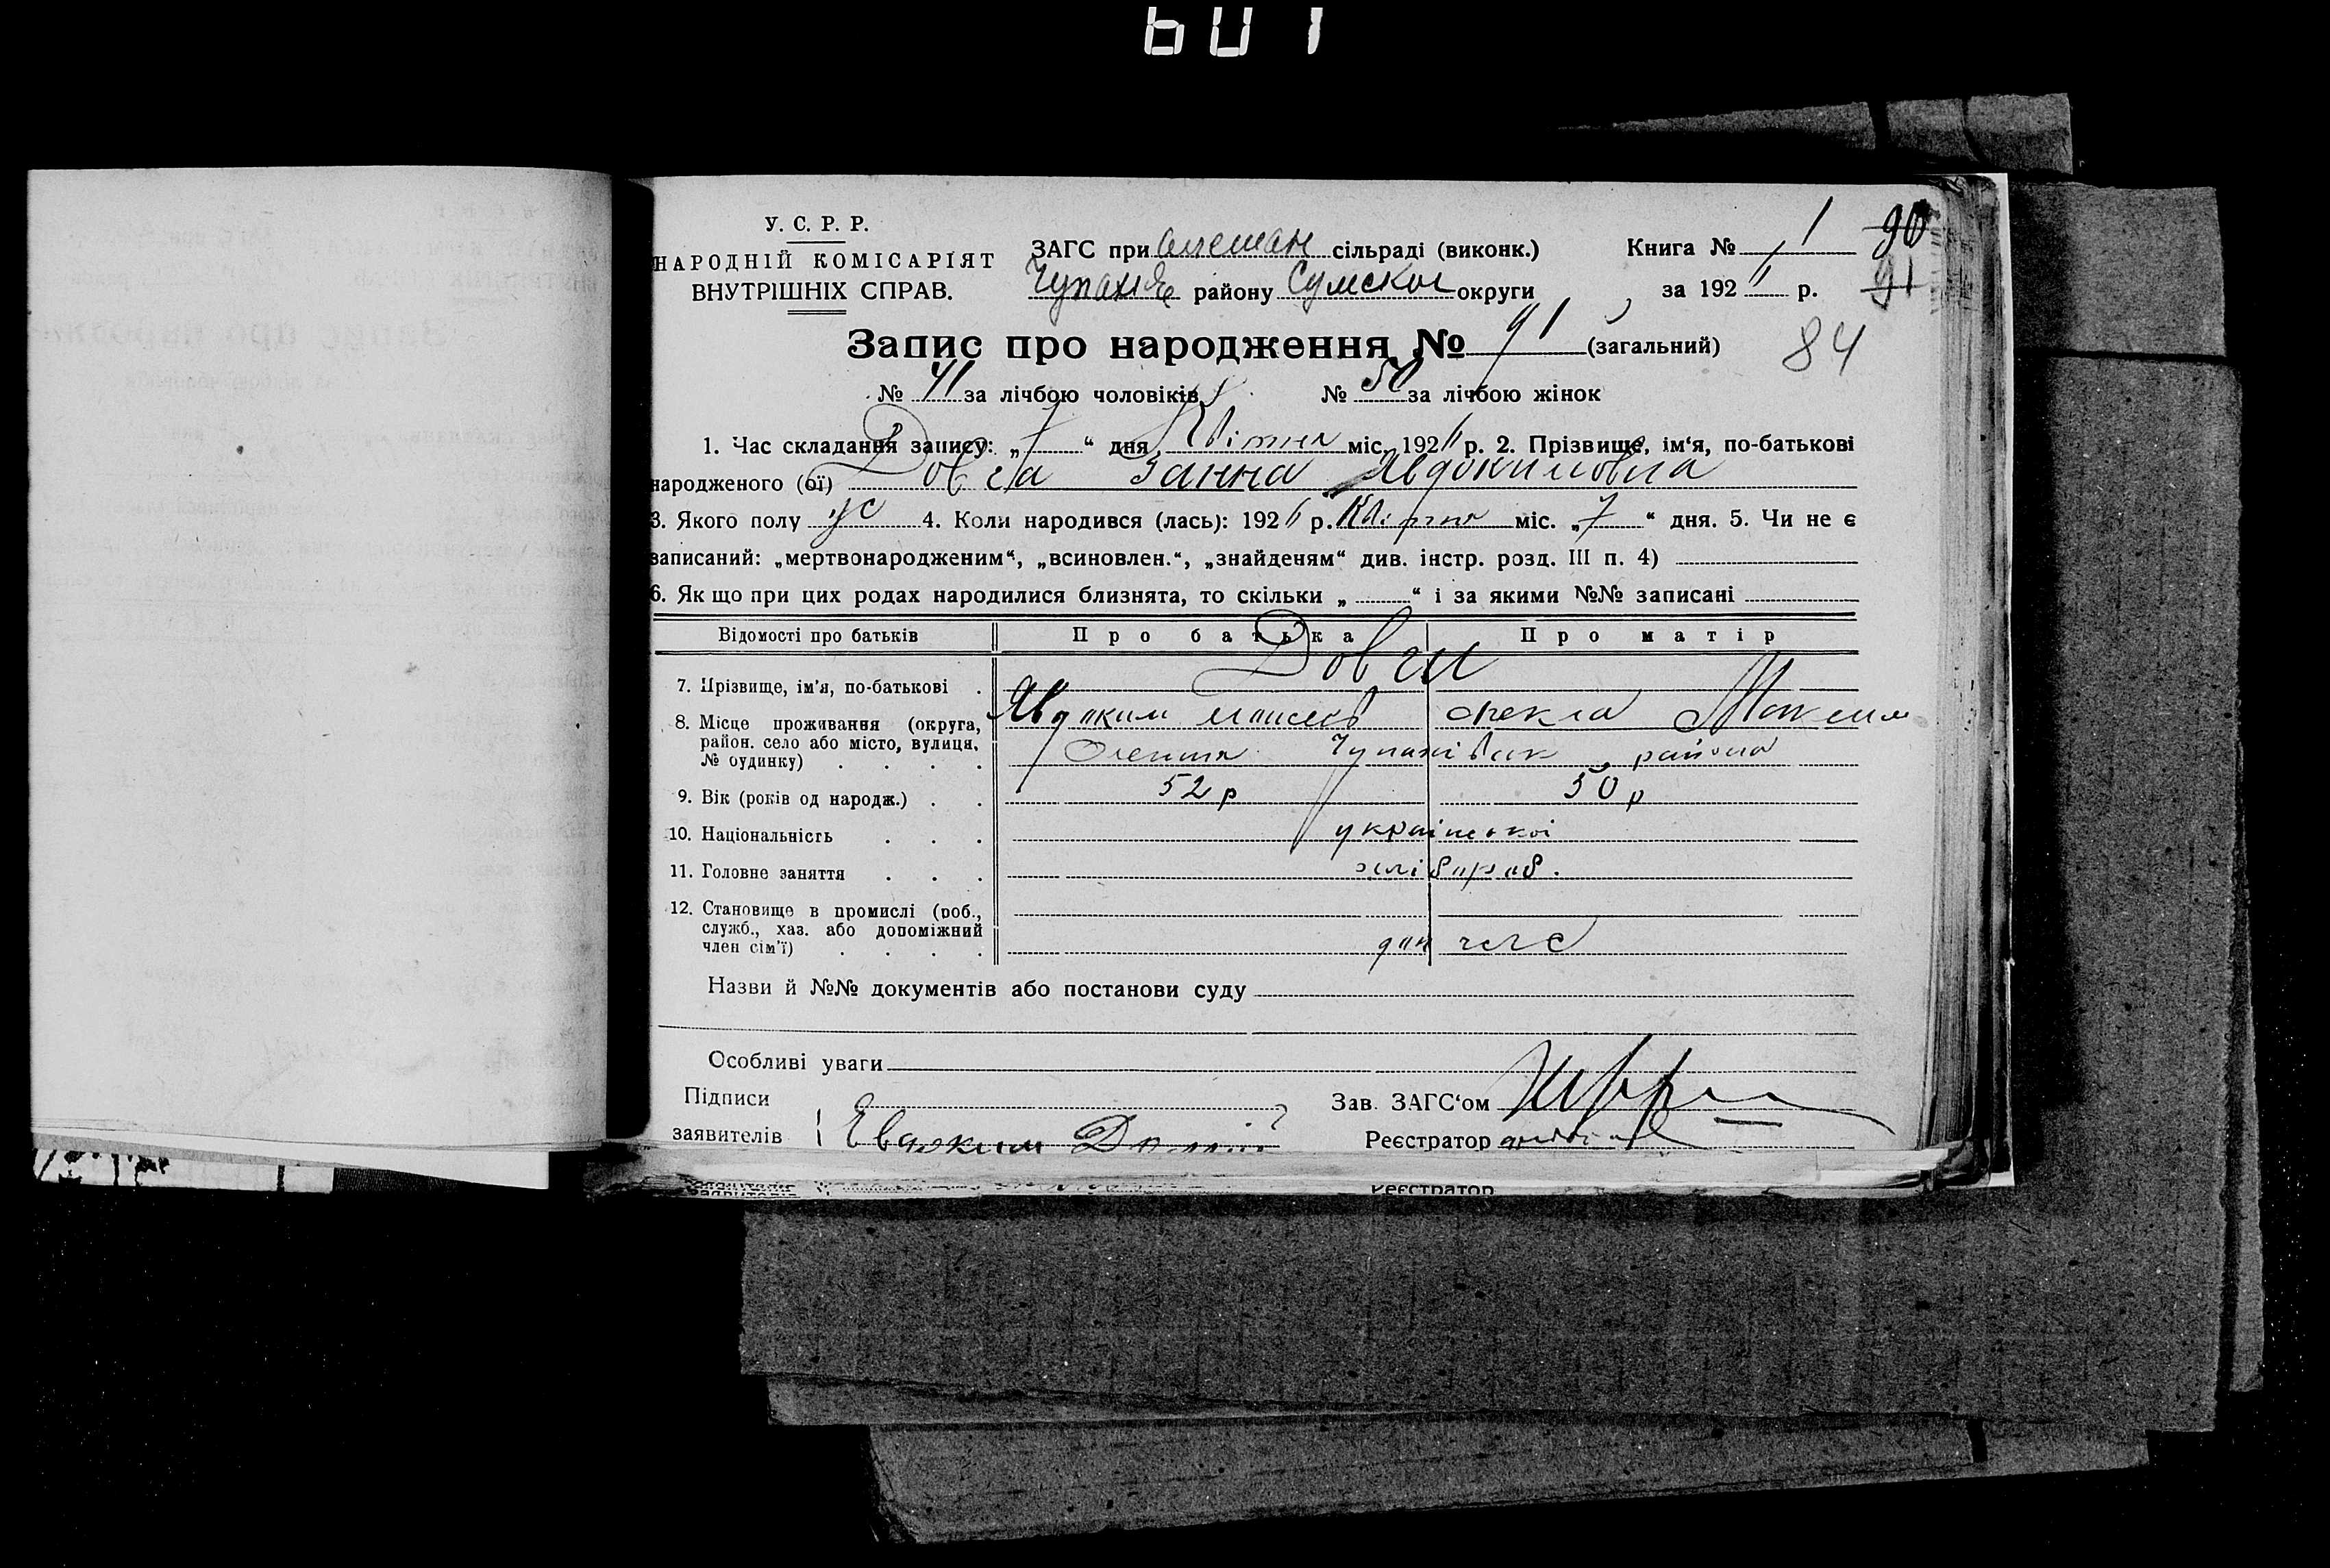 601
У. С. Р. Р.
НАРОДНІЙ КОМІСАРІЯТ
ВНУТРІШНІХ СПРАВ.
ЗАГС при олешан сільраді (виконк.)
Чупахів району Сумскої округи
Книга № 1 90
за 1926 р. 91
Запис про народження № 91 (загальний) 84
№ 41 за лічбою чоловіків № 50 за лічбою жінок
1. Час складання запису: „ 7 “ дня Квітня міс. 1926 р. 2. Прізвище, ім‘я, по-батькові
народженого (ої) Довга Ганна Явдокимовна
3. Якого полу ж 4. Коли народився (лась): 1926 р. Квітня міс. „ 7 “ дня. 5. Чи не є
записаний: „мертвонародженим“, „всиновлен.“, „знайденям“ див. інстр. розд. III п. 4)
6. Як що при цих родах народилися близнята, то скільки „ “ і за якими №№ записані
Відомості про батьків Про батька Про матір
7. Прізвище, ім‘я, по-батькові Довги
Явдоким Моисеєв Фекла Максим
8. Місце проживання (округа,
район. село або місто, вулиця,
№ будинку) Олешня Чупахівськ района
9. Вік (років од народж.) 52 р 50 р
10. Національність української
11. Головне заняття хлібороб.
12. Становище в промислі (роб.,
служб., хаз. або допоміжний
член сім‘ї) доп чле
Назви й №№ документів або постанови суду
Особливі уваги
Підписи
заявителів Евдоким
Зав. ЗАГС‘ом
Реєстратор
Реєстратор